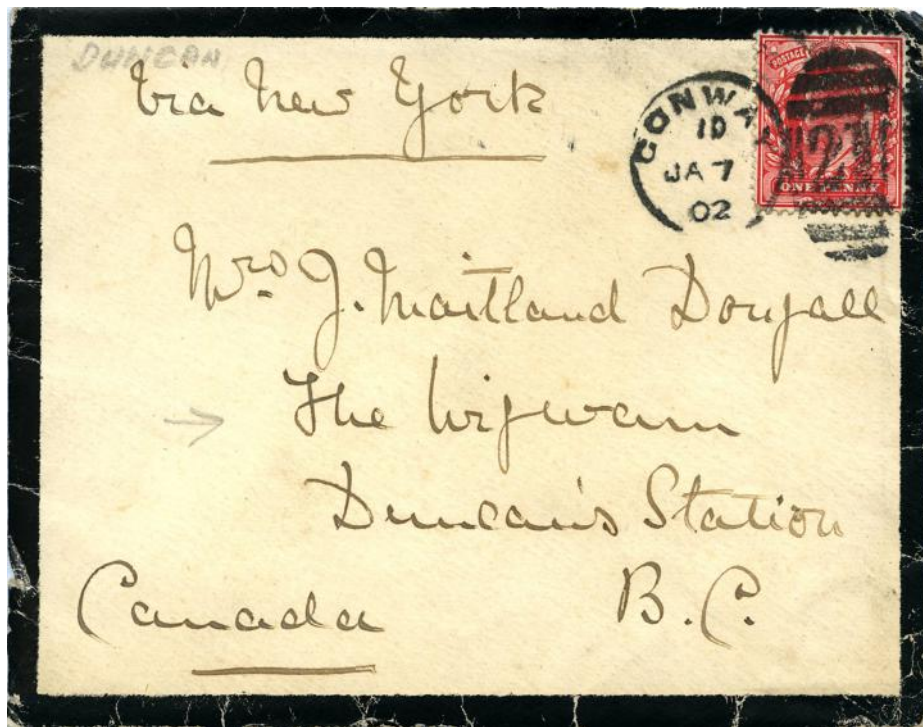 DUNCAN
Via New York
CONWAY
1D
JA 7
02
POSTAGE
ONE PENNY
Mrs. J. Maitland Dougall
The Wigwam
Duncan's Station
Canada B.C.